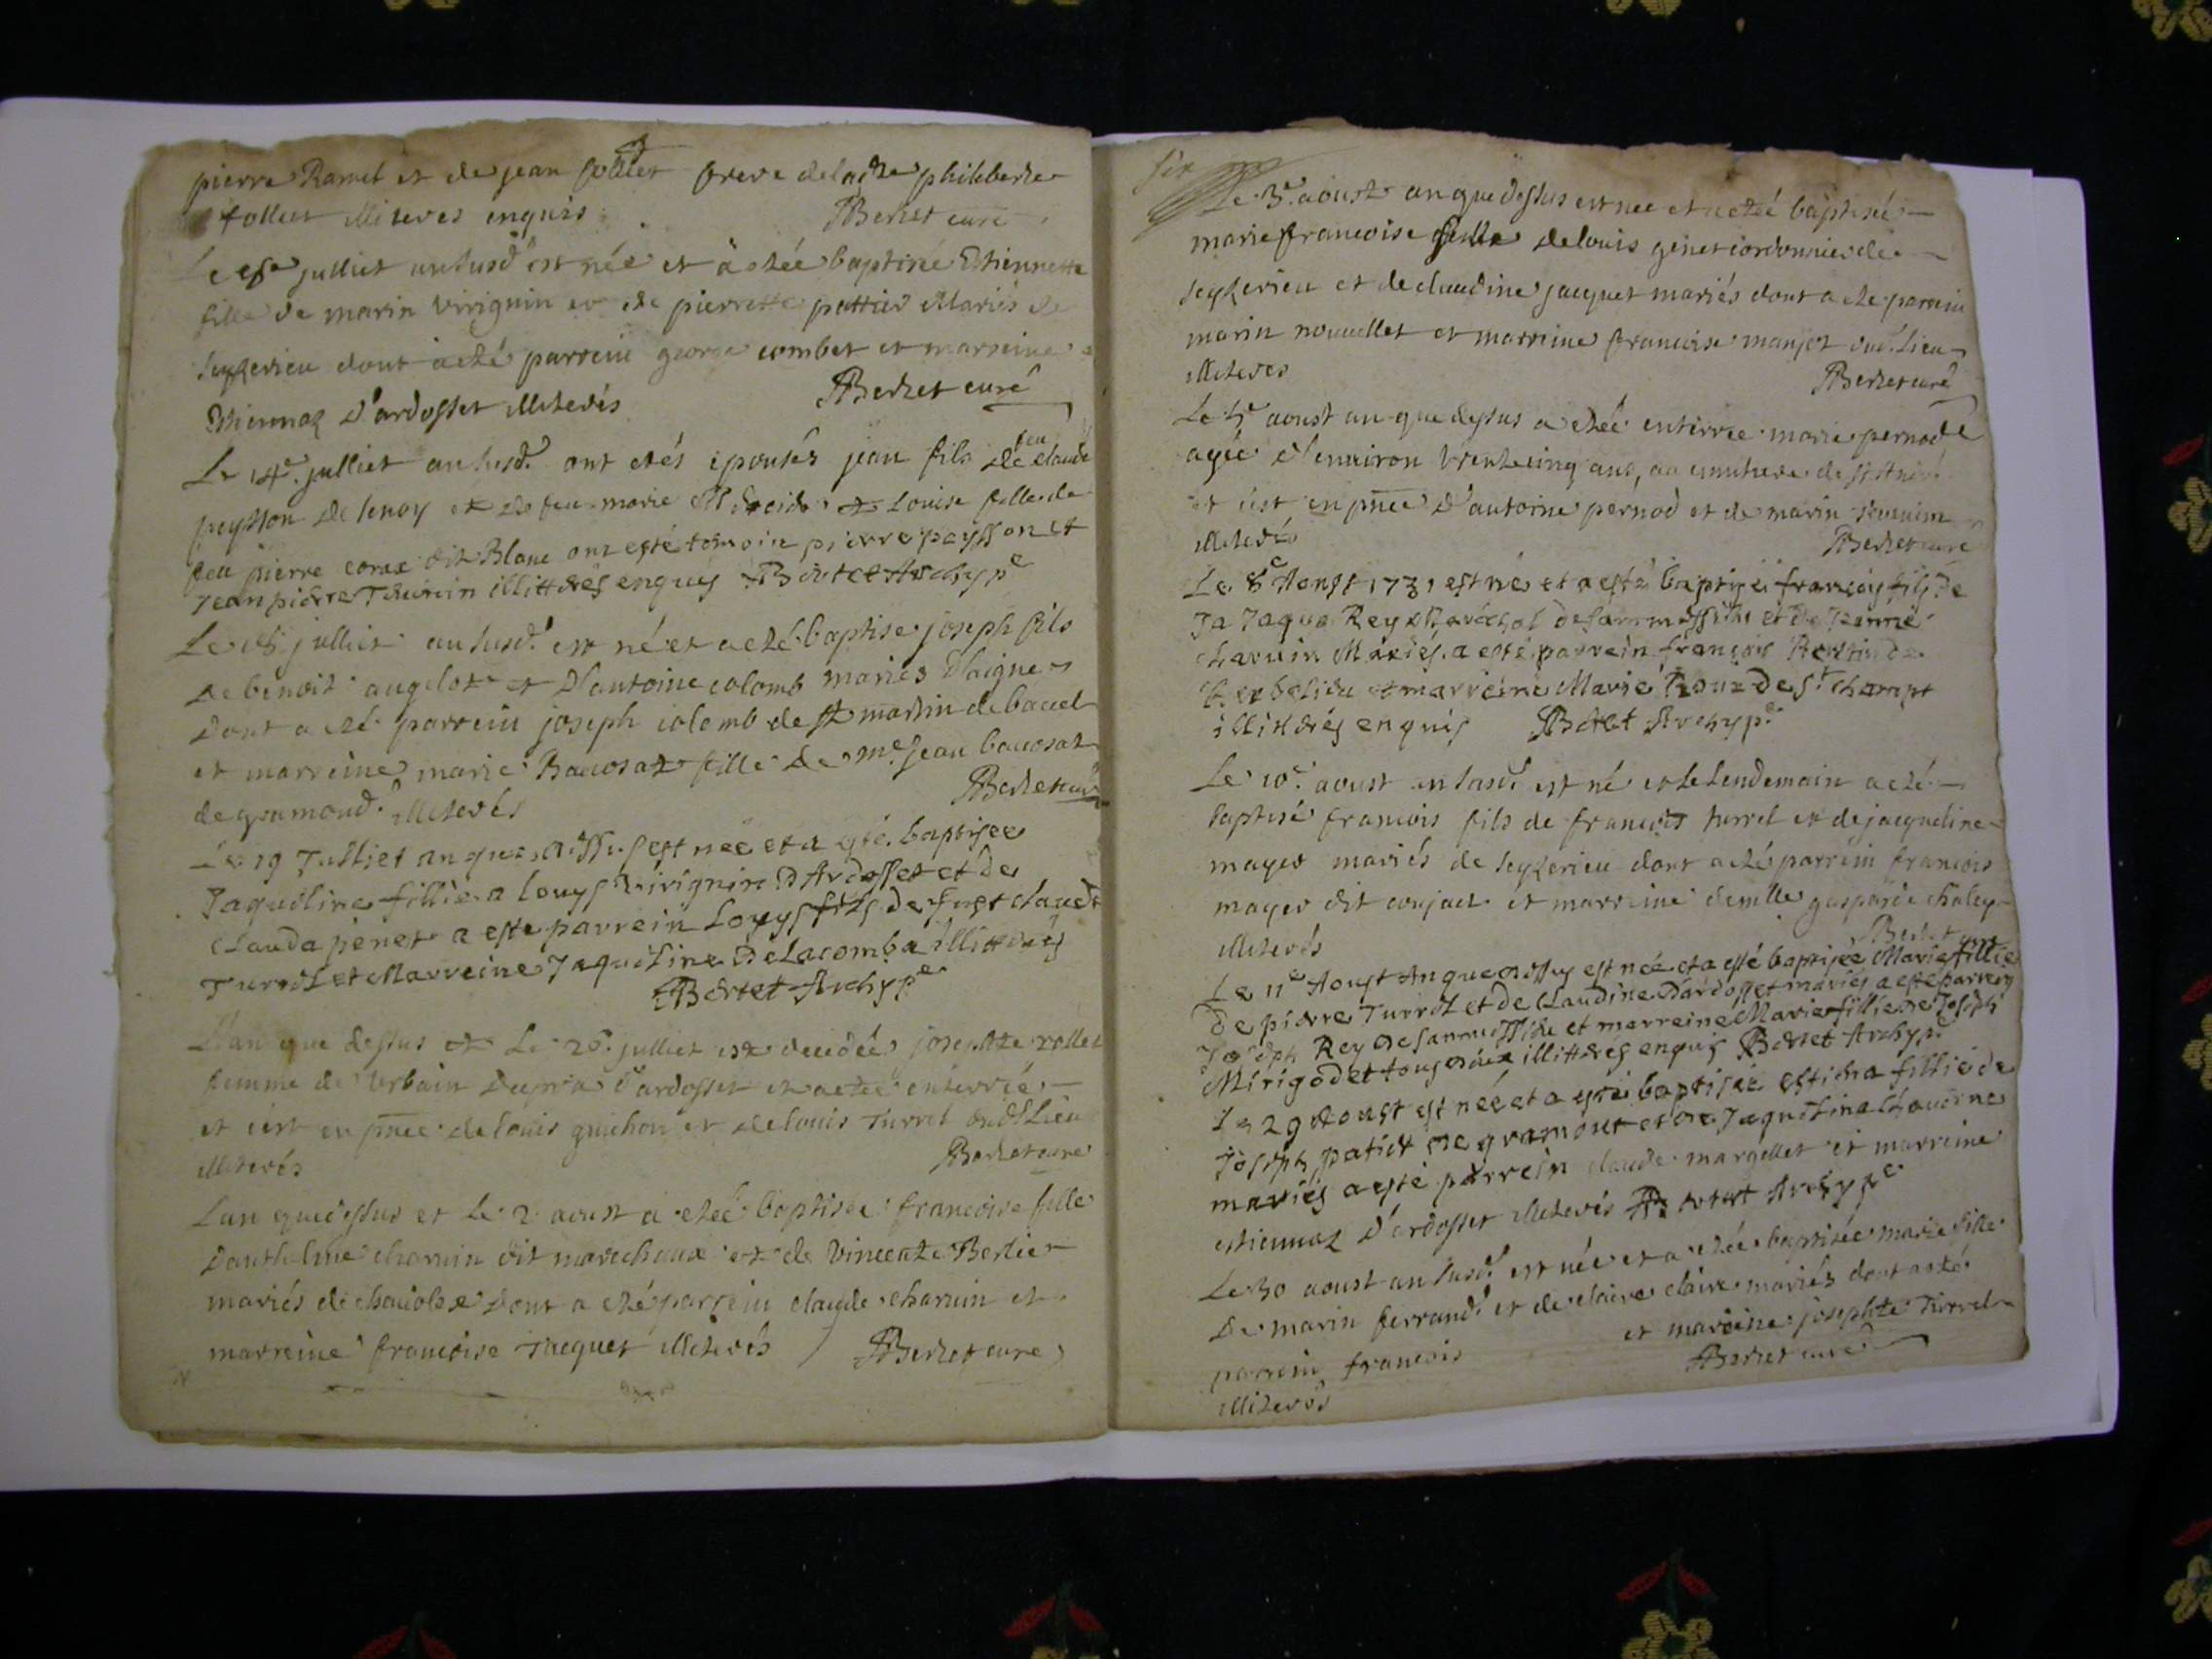 pierre Ramel et de jean follet frere de la dte philiberte
follet illiterés enquis Bertet curé
Le julliet an susd est née et a etée baptisée Estiennette
fille de marin virignin et de pierrette pattier Mariés de
seyzerieu dont a eté parrein george combet et marreine
Estiennaz d'ardosset illiterés Bertet curé
Le 14e julliet an susd. ont etés epousés jean fils de feu claude
peysson de lenoy et de feu marie et Louise fille de
feu pierre corax dit Blanc ont esté temoin pierre peysson et
Jean pierre Thurin illittérés enquis Bertet Archype
Le 18 julliet an susd. est né et a eté baptise joseph fils
de benoit angelot et d'antoine colomb mariés d'aigne
dont a eté parrein joseph colomb de st martin de bauel
et marreine marie Bauosat fille de me. jean bauosat
de gramond. illiterés Bertet curé
Le 19 Julliet an que dessus est née et a esté baptisee
Jaqueline fillie a Louys virignin D'Ardosset et de
Clauda penet a esté parrein Louys fils de Just claude
Turrel et Marreine Jaqueline De Lacomba illittérés
Bertet Archype
L'an que dessus et Le 26. julliet est decedée josephte rollet
femme de urbain d'ardosset et a eteé enterrée
et c'est en pnce de louis guichon et de louis Turrel dud. Lieu
illiterés Bertet curé
L'an que dessus et le 2 aoust a eteé baptisée francoise fille
D'anthelme charuin dit marechaux et de Vincente Bertier
mariés de chauolse dont a eté parrein claude charuin et
marreine francoise Jacquet illiterés Bertet curé
Le 3e. aoust an que dessus est nee et a eteé baptiseé
marie francoise fille de louis ginet cordonnier de
seyzerieu et de claudine jacquet mariés dont a ete parrein
marin nouuellet et marreine francoise manjot dud. Lieu
illiteres Bertet curé
Le aoust an que dessus a eteé enterree marie pernod
ageé d'enuiron trente cinq ans, au cimitiere de st André
et c'est en pnce d'antoine pernod et de marin
illiterés Bertet curé
Le 8e Aoust 1731 est né et a esté baptisé françois fils De
Ja Jaque Rey Maréchal de sammessieu et de Jeanne
charuin Mariés. a esté parrein françois de
et marreine Marie Roux De St. champt
illittérés enquis Bertet Archype
Le 10e. aoust an susd. est né et le Lendemain a eté
baptisé francois fils de francois turrel et de jacqueline
mayer mariés de seyzerieu dont a eté parrein francois
mayer dit conjaet et marreine demlle gasparde chaley
illiterés Bertet curé
Le 11e Aoust An que dessus est née et a esté baptisée Marie fillie
De pierre Turrel et de Claudine Dardosset mariés a esté parrein
Joseph Rey De sammessieu et marreine Marie fillie De Joseph
Mirigodet tous deux illittérés enquis Bertet Archype
Le 29 Aoust est née et a esté baptisée fillie de
Joseph patier De gramont et de Jaquelina
mariés a esté parrein claude margellet et marreine
estiennaz d'ardosset illiterés Bertet Archype
Le 30 aoust an susd. est née et a eteé baptisée marie fille
De marin ferrand. et de claire claire mariés dont a eté
parrein francois et marreine josephte Turrel
illiterés Bertet curé